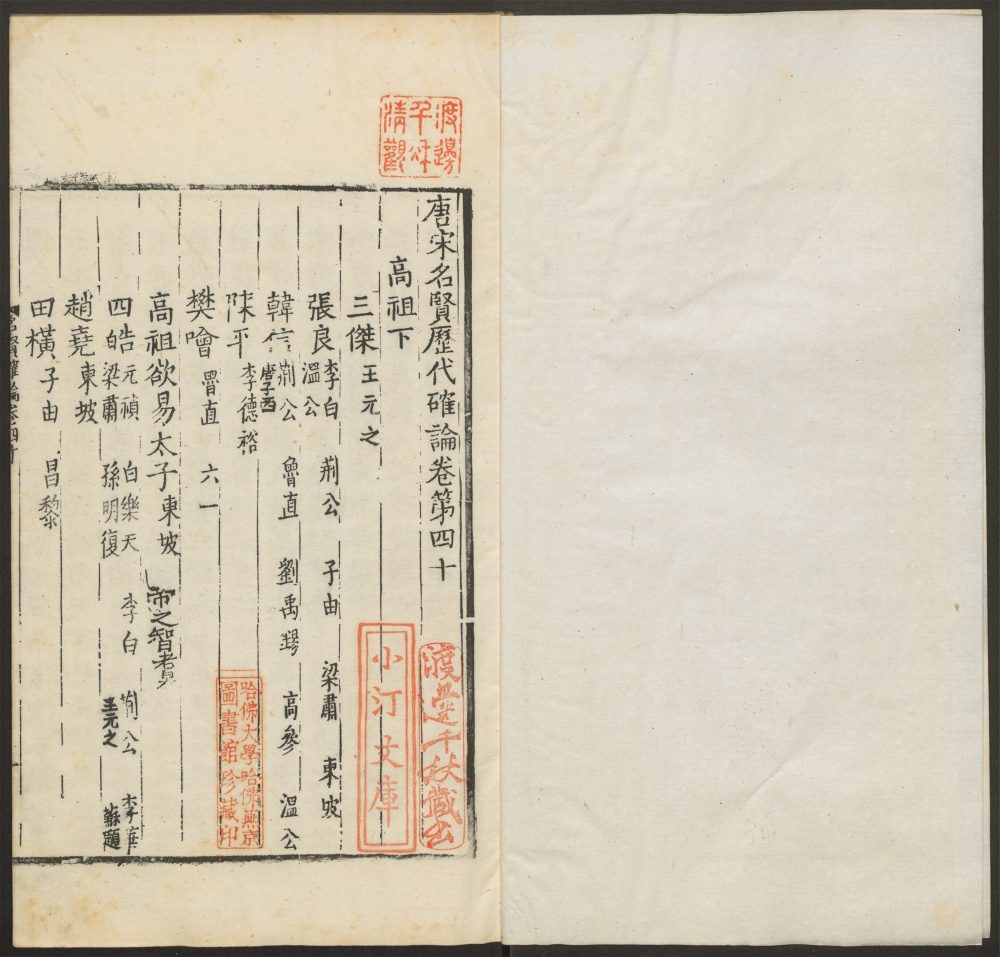 唐宋名賢歷代確論卷第四十
高祖下
三傑 王元之
張良 李白 荆公 子由 梁肅 東坡
溫公
韓信 荆公 魯直 劉禹錫 高參 溫公
唐子西
陳平 李德裕
樊噲 魯直 六一
高祖欲易太子 東坡
四皓 元禎 白樂天 李白 荆公 李華
梁肅 孫明復 王元之
趙堯 東坡
田橫 子由 昌黎
名賢確論卷四十
渡邊千秋清觀
渡邊千秋藏書
小汀文庫
哈佛大學哈佛燕京圖書館珍藏印